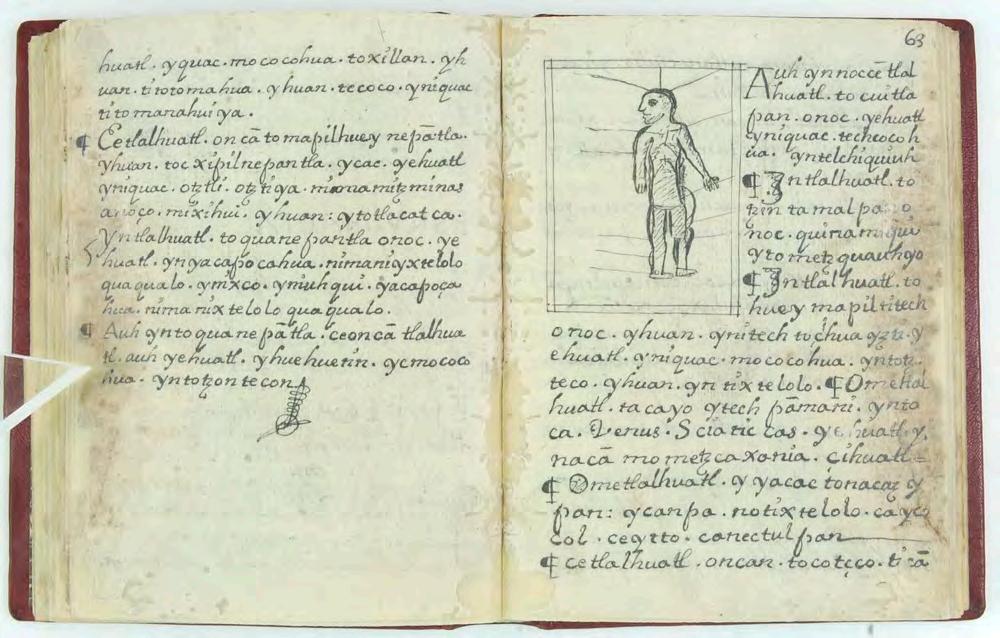 huatl. yquac. mo cocohua. toxillan. yh
uan. titotomahua. yhuan. tecoco. yniquac
titomanahuiya.
¶ Cetlalhuatl. oncā tomapilhuey nepātla.
yhuan. tocxipilnepantla. ycac. yehuatl
yniquac. otztli. otztiya. minamitzminas
anoço. mixihui. yhuan: ytotlacatca.
Yntlalhuatl. toquanepantla onoc. ye
huatl. ynyacapocahua. nimaniyxtelolo
quaqualo. ymixco. ymuhqui. yacapoça
hua. nimanixtelolo quaqualo.
¶ Auh yntoquanepātla. ceoncā tlalhua
tl. auh yehuatl. yhuehuetin. ycmococo
hua. yntotzontecon
63
Auh ynnoccētlal
huatl. tocuitla
pan. onoc. yehuatl
yniquac. techcocoh
ua. yntelchiquiuh
¶ Yntlalhuatl. to
tzintamalpa
noc. quinamiqui
ytometzquauhyo
¶ Yntlalhuatl. to
hueymapiltitech
onoc. yhuan. ynitech tochuayzti. y
ehuatl. yniquac. mococohua. yntotz
teco. yhuan. yntixtelolo. ¶ Ometlal
huatl. tacayo ytech pāmani. ynto
ca. Venus. Sciaticcas. yehuatl y
nacā mometzcaxania. çihuatl
¶ Ometlalhuatl. yyacac tonacaz y
pan: ycanpa. notixtelolo. ca yc
col. ceytto. conectulpan
¶ cetlalhuatl. oncan. tocotçco. ticā